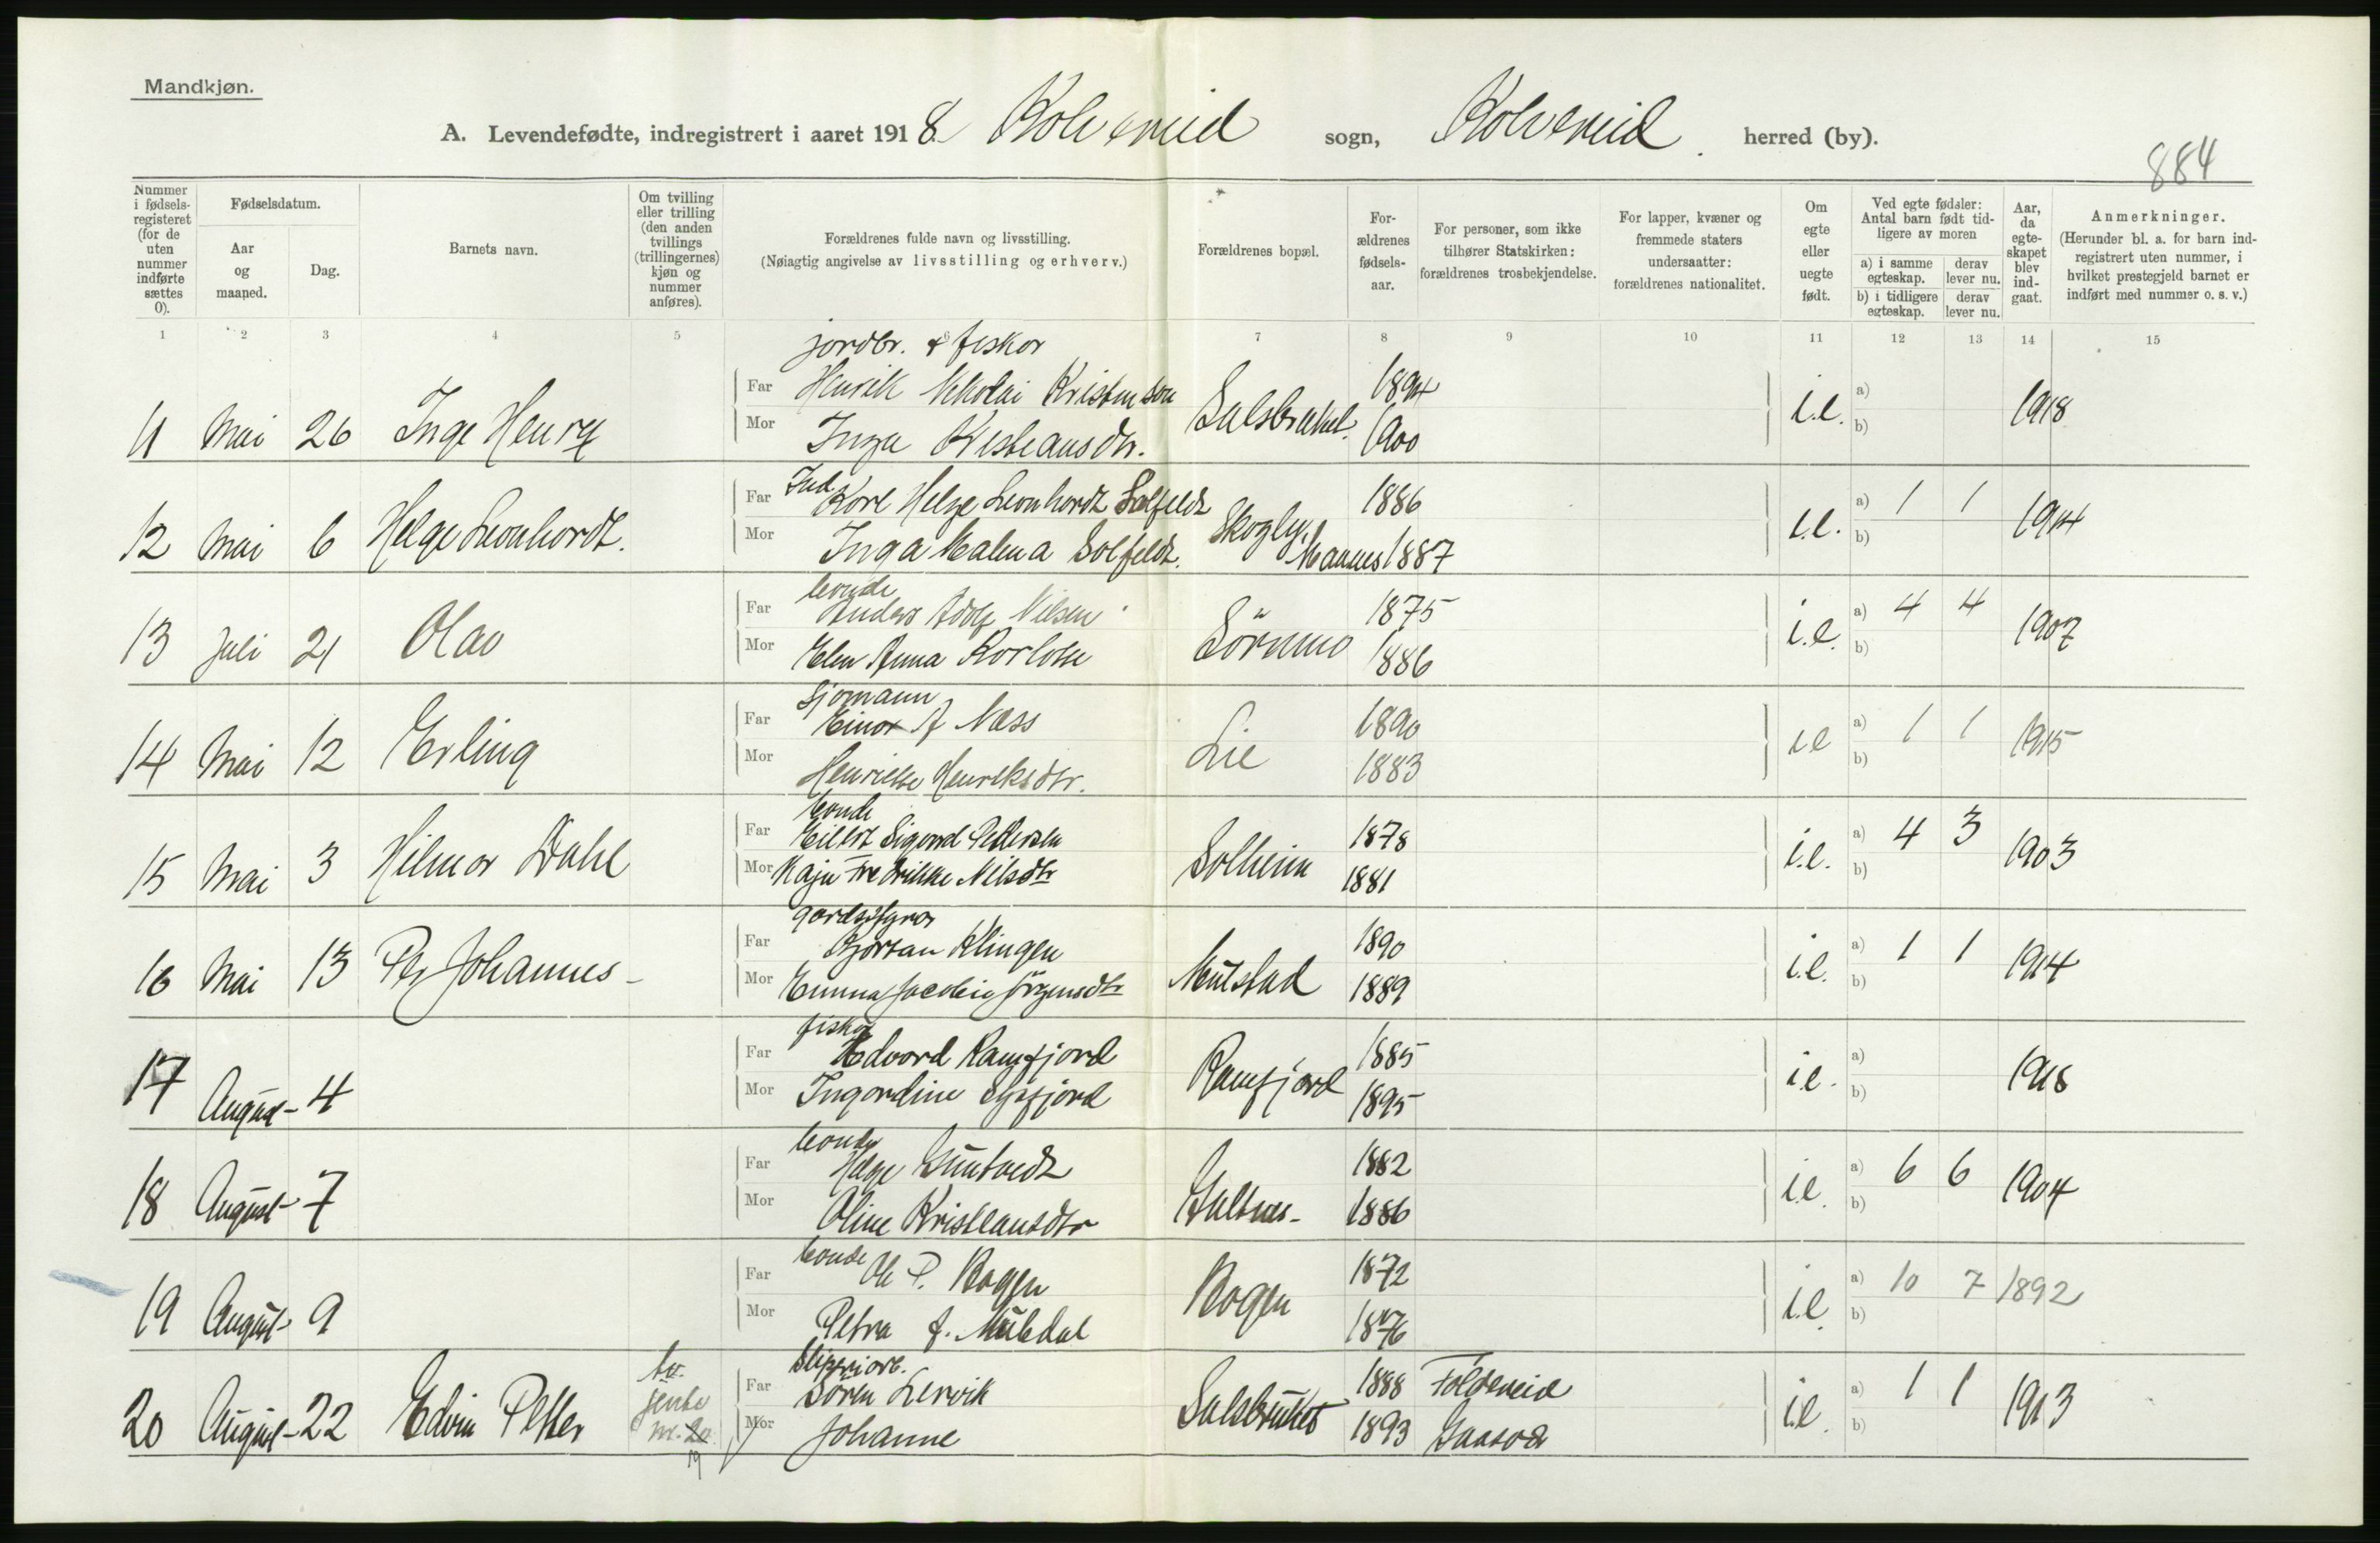 Mandkjøn.
A. Levendefødte, indregistrert i aaret 1918. Kolvereid sogn, Kolvereid. herred (by).
884
Nummer i fødsels-registeret (for de uten nummer indførte sættes 0).
Fødselsdatum.
Aar og maaned.
Dag.
Barnets navn.
Om tvilling eller trilling (den anden tvillings (trillingernes) kjøn og nummer anføres).
Forældrenes fulde navn og livsstilling.
(Nøiagtig angivelse av livsstilling og erhverv.)
Forældrenes bopæl.
For-ældrenes fødsels-aar.
For personer, som ikke tilhører Statskirken: forældrenes trosbekjendelse.
For lapper, kvæner og fremmede staters undersaatter: forældrenes nationalitet.
Om egte eller uegte født.
Ved egte fødsler: Antal barn født tid-ligere av moren
a) i samme egteskap.
derav lever nu.
b) i tidligere egteskap.
derav lever nu.
Aar, da egte-skapet blev ind-gaat.
Anmerkninger.
(Herunder bl. a. for barn ind-registrert uten nummer, i hvilket prestegjeld barnet er indført med nummer o. s. v.)
1 2 3 4 5 6 7 8 9 10 11 12 13 14 15
jordbr. & fisker
Far Henrik Nikolai Kristensen 1894
11 Mai 26 Inge Henry Salsbruket. i.e. a) b) 1918
Mor Inga Kristiansdtr. 1900
Far Karl Helge Leonhardt Solfeldt 1886
12 Mai 6 Helge Leonhardt. Skogly, i.e. a) 1 1 b) 1914
Mor Inga Malena Solfeldt. 1887
bonde
Far Anders Adolf Nilsen 1875
13 Juli 21 Olav Sörmo i.e. a) 4 4 b) 1907
Mor Elen Anna Karlsen 1886
sjømann
Far Einar A Næss 1890
14 Mai 12 Erling Lie i.e a) 1 1 b) 1915
Mor Henriette Henriksdtr. 1883
bonde
Far Eilert Sigurd Pettersen 1878
15 Mai 3 Hilmar Dahl Solheim i.e. a) 4 3 b) 1903
Mor Kaja Fredrikke Nilsdtr 1881
Far Klingen 1890
16 Mai 13 Per Johannes i.e. a) 1 1 b) 1914
Mor Emma Jacobie Jörgensdtr 1889
fisker
Far Edvard Ramfjord 1885
17 August 4 Ramfjord i.e. a) b) 1918
Mor Ingardine 1895
bonde
Far Helge 1882
18 August 7 i.e. a) 6 6 b) 1904
Mor Oline Kristiansdtr 1886
bonde
Far Ole P. Bogen 1872
19 August 9 Bogen i.e. a) 10 7 b) 1892
Mor Petra f. 1876
tv. jente nr. 20 19
Sliperiarb.
Far Sören Lervik 1888 Foldereid
20 August 22 Edvin Petter Salsbruket i.e. a) 1 1 b) 1913
Mor Johanne 1893